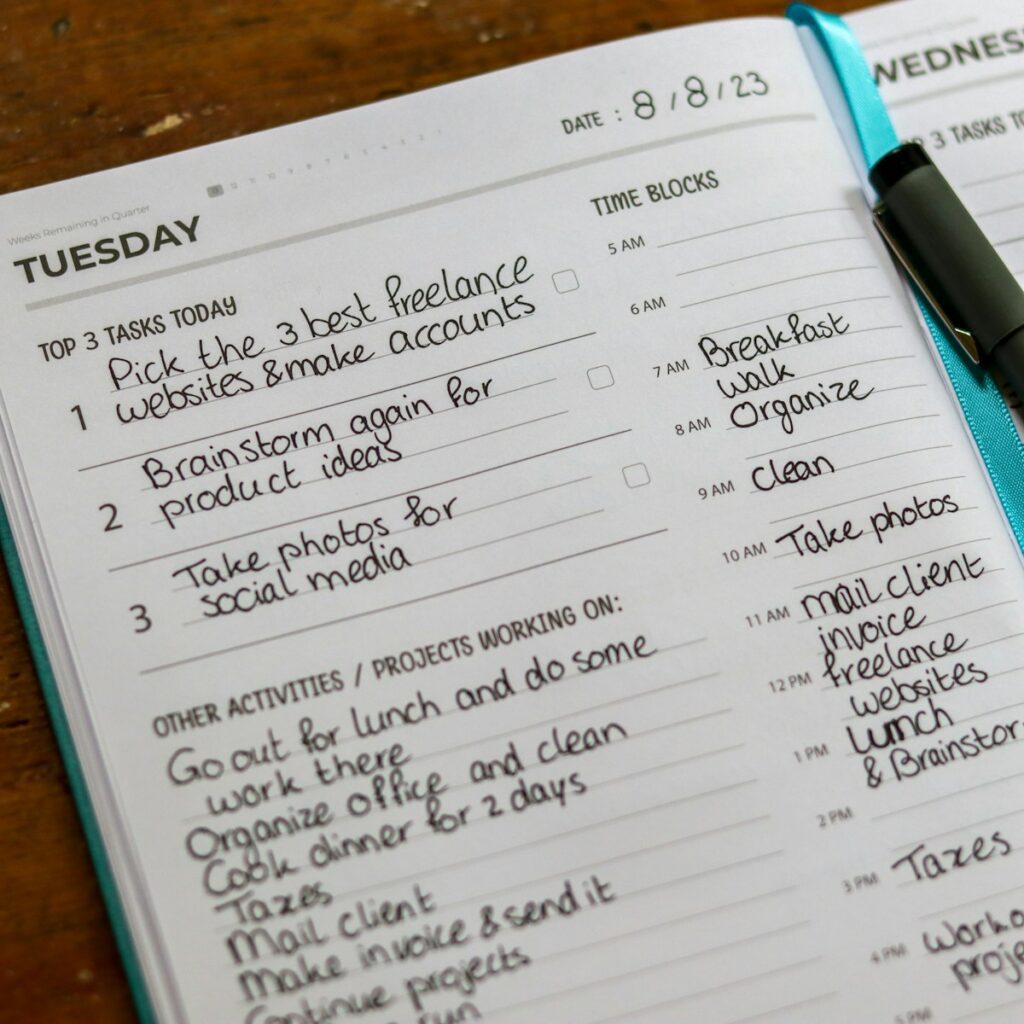 Weeks Remaining in Quarter
TUESDAY
DATE : 8 / 8 / 23
TOP 3 TASKS TODAY
1
Pick the 3 best freelance
websites & make accounts
2
Brainstorm again for
product ideas
3
Take photos for
social media
OTHER ACTIVITIES / PROJECTS WORKING ON:
Go out for lunch and do some
work there
Organize office and clean
Cook dinner for 2 days
Taxes
Mail client
Make invoice & send it
Continue projects
run
TIME BLOCKS
5 AM
6 AM
7 AM Breakfast
walk
8 AM Organize
9 AM Clean
10 AM Take photos
11 AM mail client
invoice
12 PM freelance
websites
1 PM lunch
& Brainstor
2 PM
3 PM Taxes
4 PM worko
proje
5 PM
WEDNES
3 TASKS TO